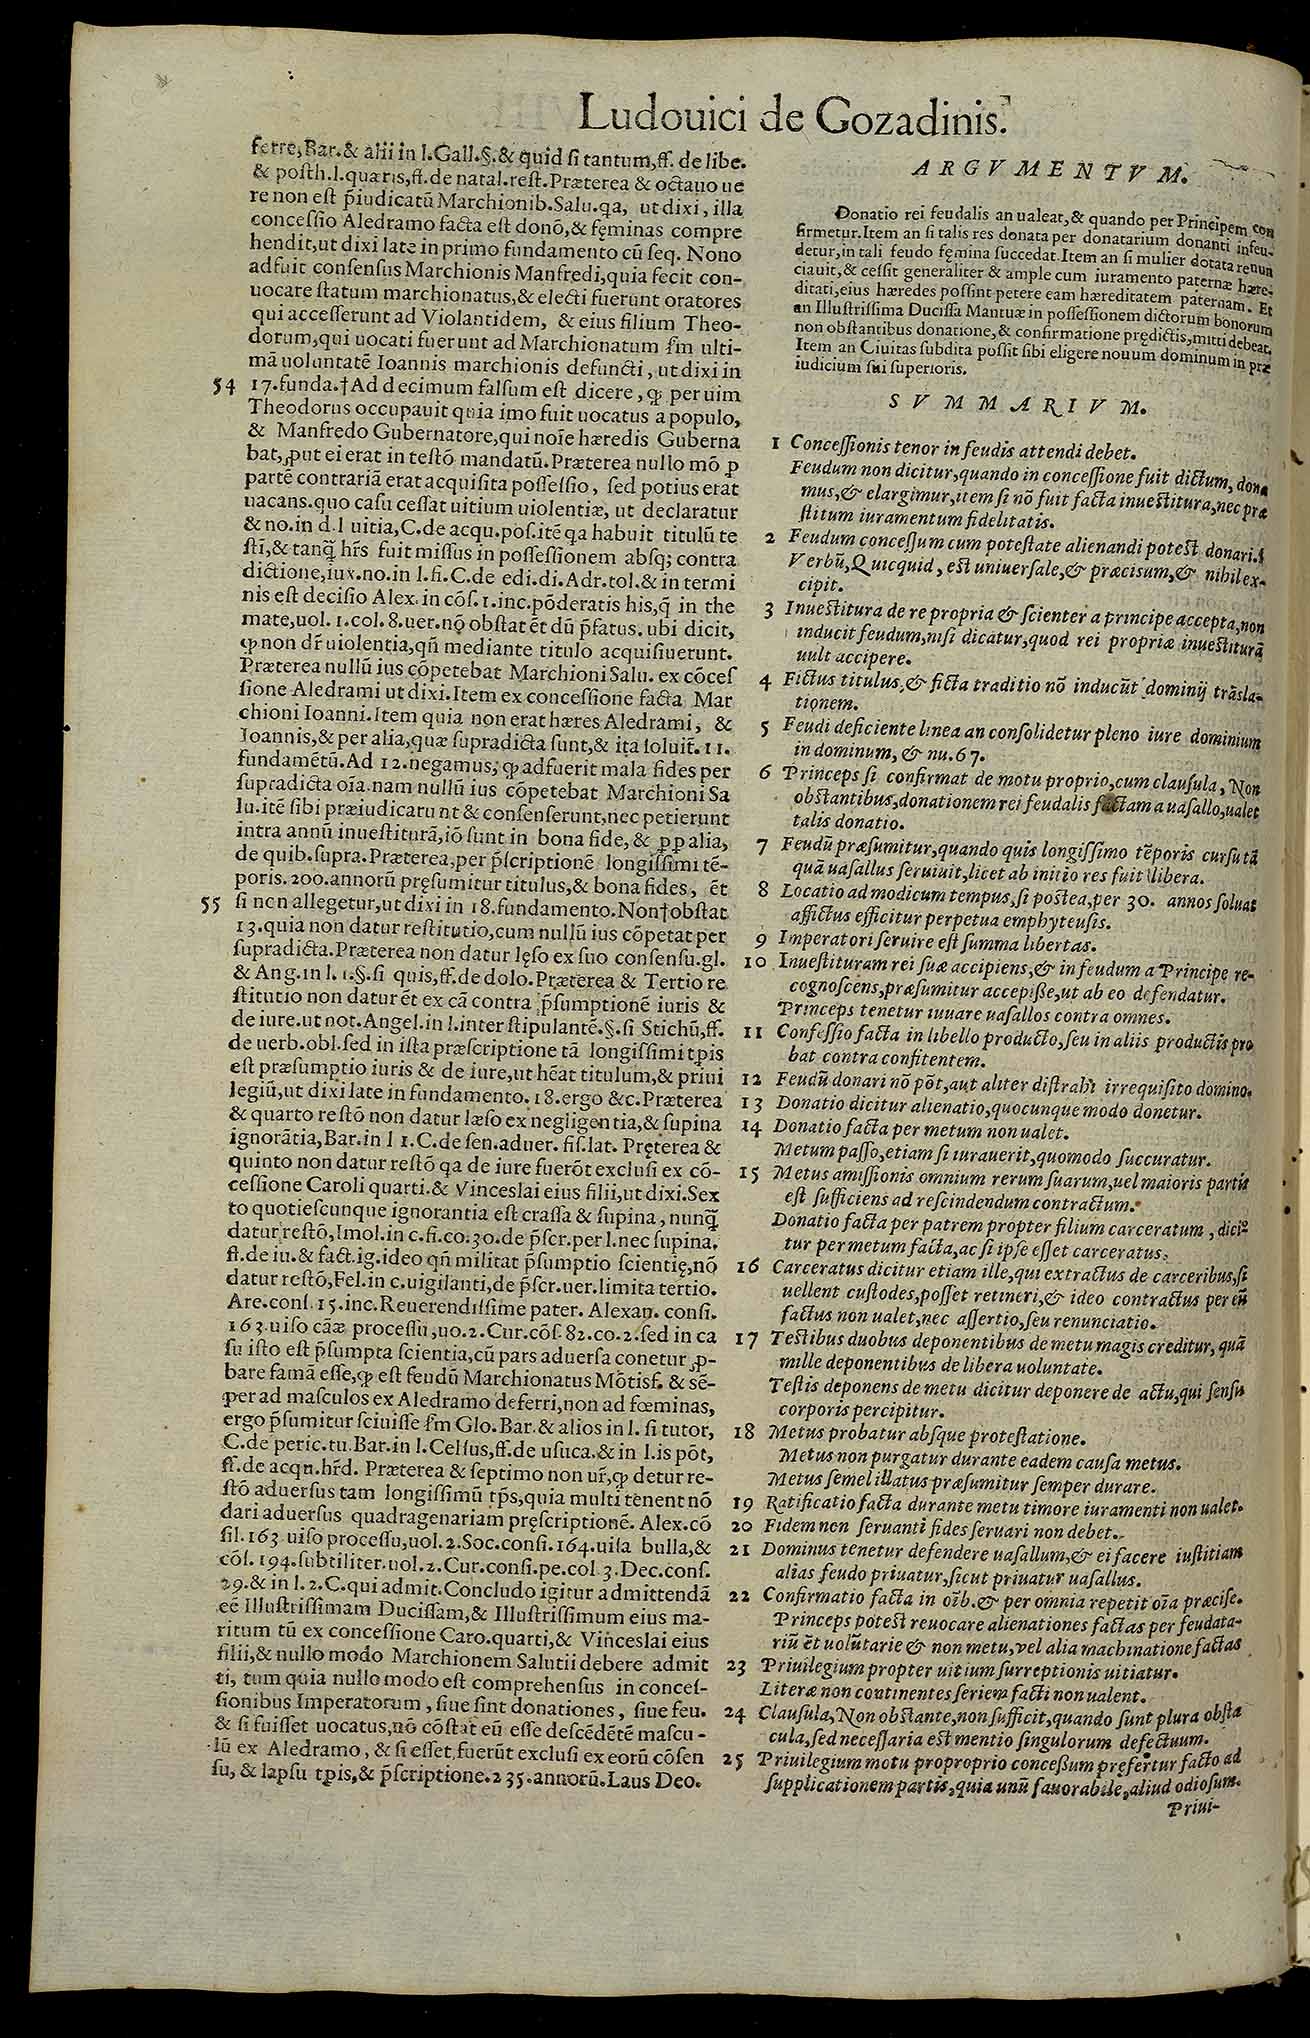 Ludouici de Gozadinis.
ferre, Bar. & alii in l. Gall. §. & quid si tantum, ff. de libe.
& posth. l. quæris, ff. de natal. rest. Præterea & octauo ue
re non est p̄iudicatũ Marchionib. Salu. qa, ut dixi, illa
concessio Aledramo facta est donõ, & fęminas compre
hendit, ut dixi late in primo fundamento cũ seq. Nono
adfuit consensus Marchionis Manfredi, quia fecit con-
uocare statum marchionatus, & electi fuerunt oratores
qui accesserunt ad Violantidem, & eius filium Theo-
dorum, qui uocati fuerunt ad Marchionatum s̃m ulti-
mã uoluntatẽ Ioannis marchionis defuncti, ut dixi in
54 17. funda. † Ad decimum falsum est dicere, ꝙ per uim
Theodorus occupauit quia imo fuit uocatus a populo,
& Manfredo Gubernatore, qui noĩe hæredis Guberna
bat, ꝓut ei erat in testõ mandatũ. Præterea nullo mõ ꝑ
partẽ contrariã erat acquisita possessio, sed potius erat
uacans. quo casu cessat uitium uiolentiæ, ut declaratur
& no. in d. l uitia, C. de acqu. pos. itẽ qa habuit titulũ te
sti, & tanq̃ hr̃s fuit missus in possessionem absq; contra
dictione, iux. no. in l. fi. C. de edi. di. Adr. tol. & in termi
nis est decisio Alex. in cõs. 1. inc. põderatis his, q̃ in the
mate, uol. 1. col. 8. uer. nõ obstat ẽt dũ p̃fatus. ubi dicit,
ꝙ non dr̃ uiolentia, qñ mediante titulo acquisiuerunt.
Præterea nullũ ius cõpetebat Marchioni Salu. ex cõces
sione Aledrami ut dixi. Item ex concessione facta Mar
chioni Ioanni. Item quia non erat hæres Aledrami, &
Ioannis, & per alia, quæ supradicta sunt, & ita soluit. 11.
fundamẽtũ. Ad 12. negamus, ꝙ adfuerit mala fides per
supradicta oĩa. nam nullũ ius cõpetebat Marchioni Sa
lu. itẽ sibi præiudicaru nt & consenserunt, nec petierunt
intra annũ inuestiturã, iõ sunt in bona fide, & ꝑꝑ alia,
de quib. supra. Præterea, per p̃scriptionẽ longissimi tẽ-
poris. 200. annorũ pręsumitur titulus, & bona fides, ẽt
55 si non allegetur, ut dixi in 18. fundamento. Non † obstat
13. quia non datur restitutio, cum nullũ ius cõpetat per
supradicta. Præterea non datur lęso ex suo consensu. gl.
& Ang. in l. 1. §. si quis, ff. de dolo. Præterea & Tertio re
stitutio non datur ẽt ex cã contra p̃sumptionẽ iuris &
de iure. ut not. Angel. in l. inter stipulantẽ. §. si Stichũ, ff.
de uerb. obl. sed in ista præscriptione tã longissimi tp̃is
est præsumptio iuris & de iure, ut hẽat titulum, & priui
legiũ, ut dixi late in fundamento. 18. ergo &c. Præterea
& quarto restõ non datur læso ex negligentia, & supina
ignorãtia, Bar. in l 1. C. de sen. aduer. fis. lat. Pręterea &
quinto non datur restõ qa de iure fuerõt exclusi ex cõ-
cessione Caroli quarti. & Vinceslai eius filii, ut dixi. Sex
to quotiescunque ignorantia est crassa & supina, nunq̃
datur restõ, Imol. in c. fi. co. 30. de p̃scr. per l. nec supina.
ff. de iu. & fact. ig. ideo qñ militat p̃sumptio scientię, nõ
datur restõ, Fel. in c. uigilanti, de p̃scr. uer. limita tertio.
Are. cons. 15. inc. Reuerendissime pater. Alexan. consi.
163. uiso cãæ processu, uo. 2. Cur. cõs. 82. co. 2. sed in ca
su isto est p̃sumpta scientia, cũ pars aduersa conetur ꝓ-
bare famã esse, ꝙ est feudũ Marchionatus Mõtisf. & sẽ-
per ad masculos ex Aledramo deferri, non ad fœminas,
ergo p̃sumitur sciuisse s̃m Glo. Bar. & alios in l. si tutor,
C. de peric. tu. Bar. in l. Celsus, ff. de usuca. & in l. is põt,
ff. de acqu. hr̃d. Præterea & septimo non ur̃, ꝙ detur re-
stõ aduersus tam longissimũ tp̃s, quia multi tenent nõ
dari aduersus quadragenariam pręscriptionẽ. Alex. cõ
sil. 163. uiso processu, uol. 2. Soc. consi. 164. uisa bulla, &
cõs. 194. subtiliter. uol. 2. Cur. consi. pe. col. 3. Dec. cons.
29. & in l. 2. C. qui admit. Concludo igitur admittendã
eẽ Illustrissimam Ducissam, & Illustrissimum eius ma-
ritum tũ ex concessione Caro. quarti, & Vinceslai eius
filii, & nullo modo Marchionem Salutii debere admit
ti, tum quia nullo modo est comprehensus in conces-
sionibus Imperatorum, siue sint donationes, siue feu.
& si fuisset uocatus, nõ cõstat eũ esse descẽdẽtẽ mascu-
lũ ex Aledramo, & si esset, fuerũt exclusi ex eorũ cõsen
su, & lapsu tp̃is, & p̃scriptione. 235. annorũ. Laus Deo.
ARGVMENTVM.
Donatio rei feudalis an ualeat, & quando per Principem con
firmetur. Item an si talis res donata per donatarium donanti infeu-
detur, in tali feudo fęmina succedat. Item an si mulier dotata renun
ciauit, & cessit generaliter & ample cum iuramento paternæ hære-
ditati, eius hæredes possint petere eam hæreditatem paternam. Et
an Illustrissima Ducissa Mantuæ in possessionem dictorum bonorum
non obstantibus donatione, & confirmatione prędictis, mitti debeat.
Item an Ciuitas subdita possit sibi eligere nouum dominum in præ
iudicium sui superioris.
SVMMARIVM.
1 Concessionis tenor in feudis attendi debet.
Feudum non dicitur, quando in concessione fuit dictum, dona
mus, & elargimur, item si nõ fuit facta inuestitura, nec præ
stitum iuramentum fidelitatis.
2 Feudum concessum cum potestate alienandi potest donari.
Verbũ, Quicquid, est uniuersale, & præcisum, & nihil ex-
cipit.
3 Inuestitura de re propria & scienter a principe accepta, non
inducit feudum, nisi dicatur, quod rei propriæ inuestiturã
uult accipere.
4 Fictus titulus, & ficta traditio nõ inducũt dominij trãsla-
tionem.
5 Feudi deficiente linea an consolidetur pleno iure dominium
in dominum, & nu. 67.
6 Princeps si confirmat de motu proprio, cum clausula, Non
obstantibus, donationem rei feudalis factam a uasallo, ualet
talis donatio.
7 Feudũ præsumitur, quando quis longissimo tẽporis cursu tã
quã uasallus seruiuit, licet ab initio res fuit libera.
8 Locatio ad modicum tempus, si postea, per 30. annos soluat
affictus efficitur perpetua emphyteusis.
9 Imperatori seruire est summa libertas.
10 Inuestituram rei suæ accipiens, & in feudum a Principe re-
cognoscens, præsumitur accepisse, ut ab eo defendatur.
Princeps tenetur iuuare uasallos contra omnes.
11 Confessio facta in libello producto, seu in aliis productis pro
bat contra confitentem.
12 Feudũ donari nõ põt, aut aliter distrahi irrequisito domino.
13 Donatio dicitur alienatio, quocunque modo donetur.
14 Donatio facta per metum non ualet.
Metum passo, etiam si iurauerit, quomodo succuratur.
15 Metus amissionis omnium rerum suarum, uel maioris partis
est sufficiens ad rescindendum contractum.
Donatio facta per patrem propter filium carceratum, dici-
tur per metum facta, ac si ipse esset carceratus.
16 Carceratus dicitur etiam ille, qui extractus de carceribus, si
uellent custodes, posset retineri, & ideo contractus per eũ
factus non ualet, nec assertio, seu renunciatio.
17 Testibus duobus deponentibus de metu magis creditur, quã
mille deponentibus de libera uoluntate.
Testis deponens de metu dicitur deponere de actu, qui sensu
corporis percipitur.
18 Metus probatur absque protestatione.
Metus non purgatur durante eadem causa metus.
Metus semel illatus præsumitur semper durare.
19 Ratificatio facta durante metu timore iuramenti non ualet.
20 Fidem non seruanti fides seruari non debet.
21 Dominus tenetur defendere uasallum, & ei facere iustitiam
alias feudo priuatur, sicut priuatur uasallus.
22 Confirmatio facta in oĩb. & per omnia repetit oĩa præcise.
Princeps potest reuocare alienationes factas per feudata-
riũ ẽt uolũtarie & non metu, vel alia machinatione factas
23 Priuilegium propter uitium surreptionis uitiatur.
Literæ non continentes seriem facti non ualent.
24 Clausula, Non obstante, non sufficit, quando sunt plura obsta
cula, sed necessaria est mentio singulorum defectuum.
25 Priuilegium motu proproprio concessum pręfertur facto ad
supplicationem partis, quia unũ fauorabile, aliud odiosum.
Priui-